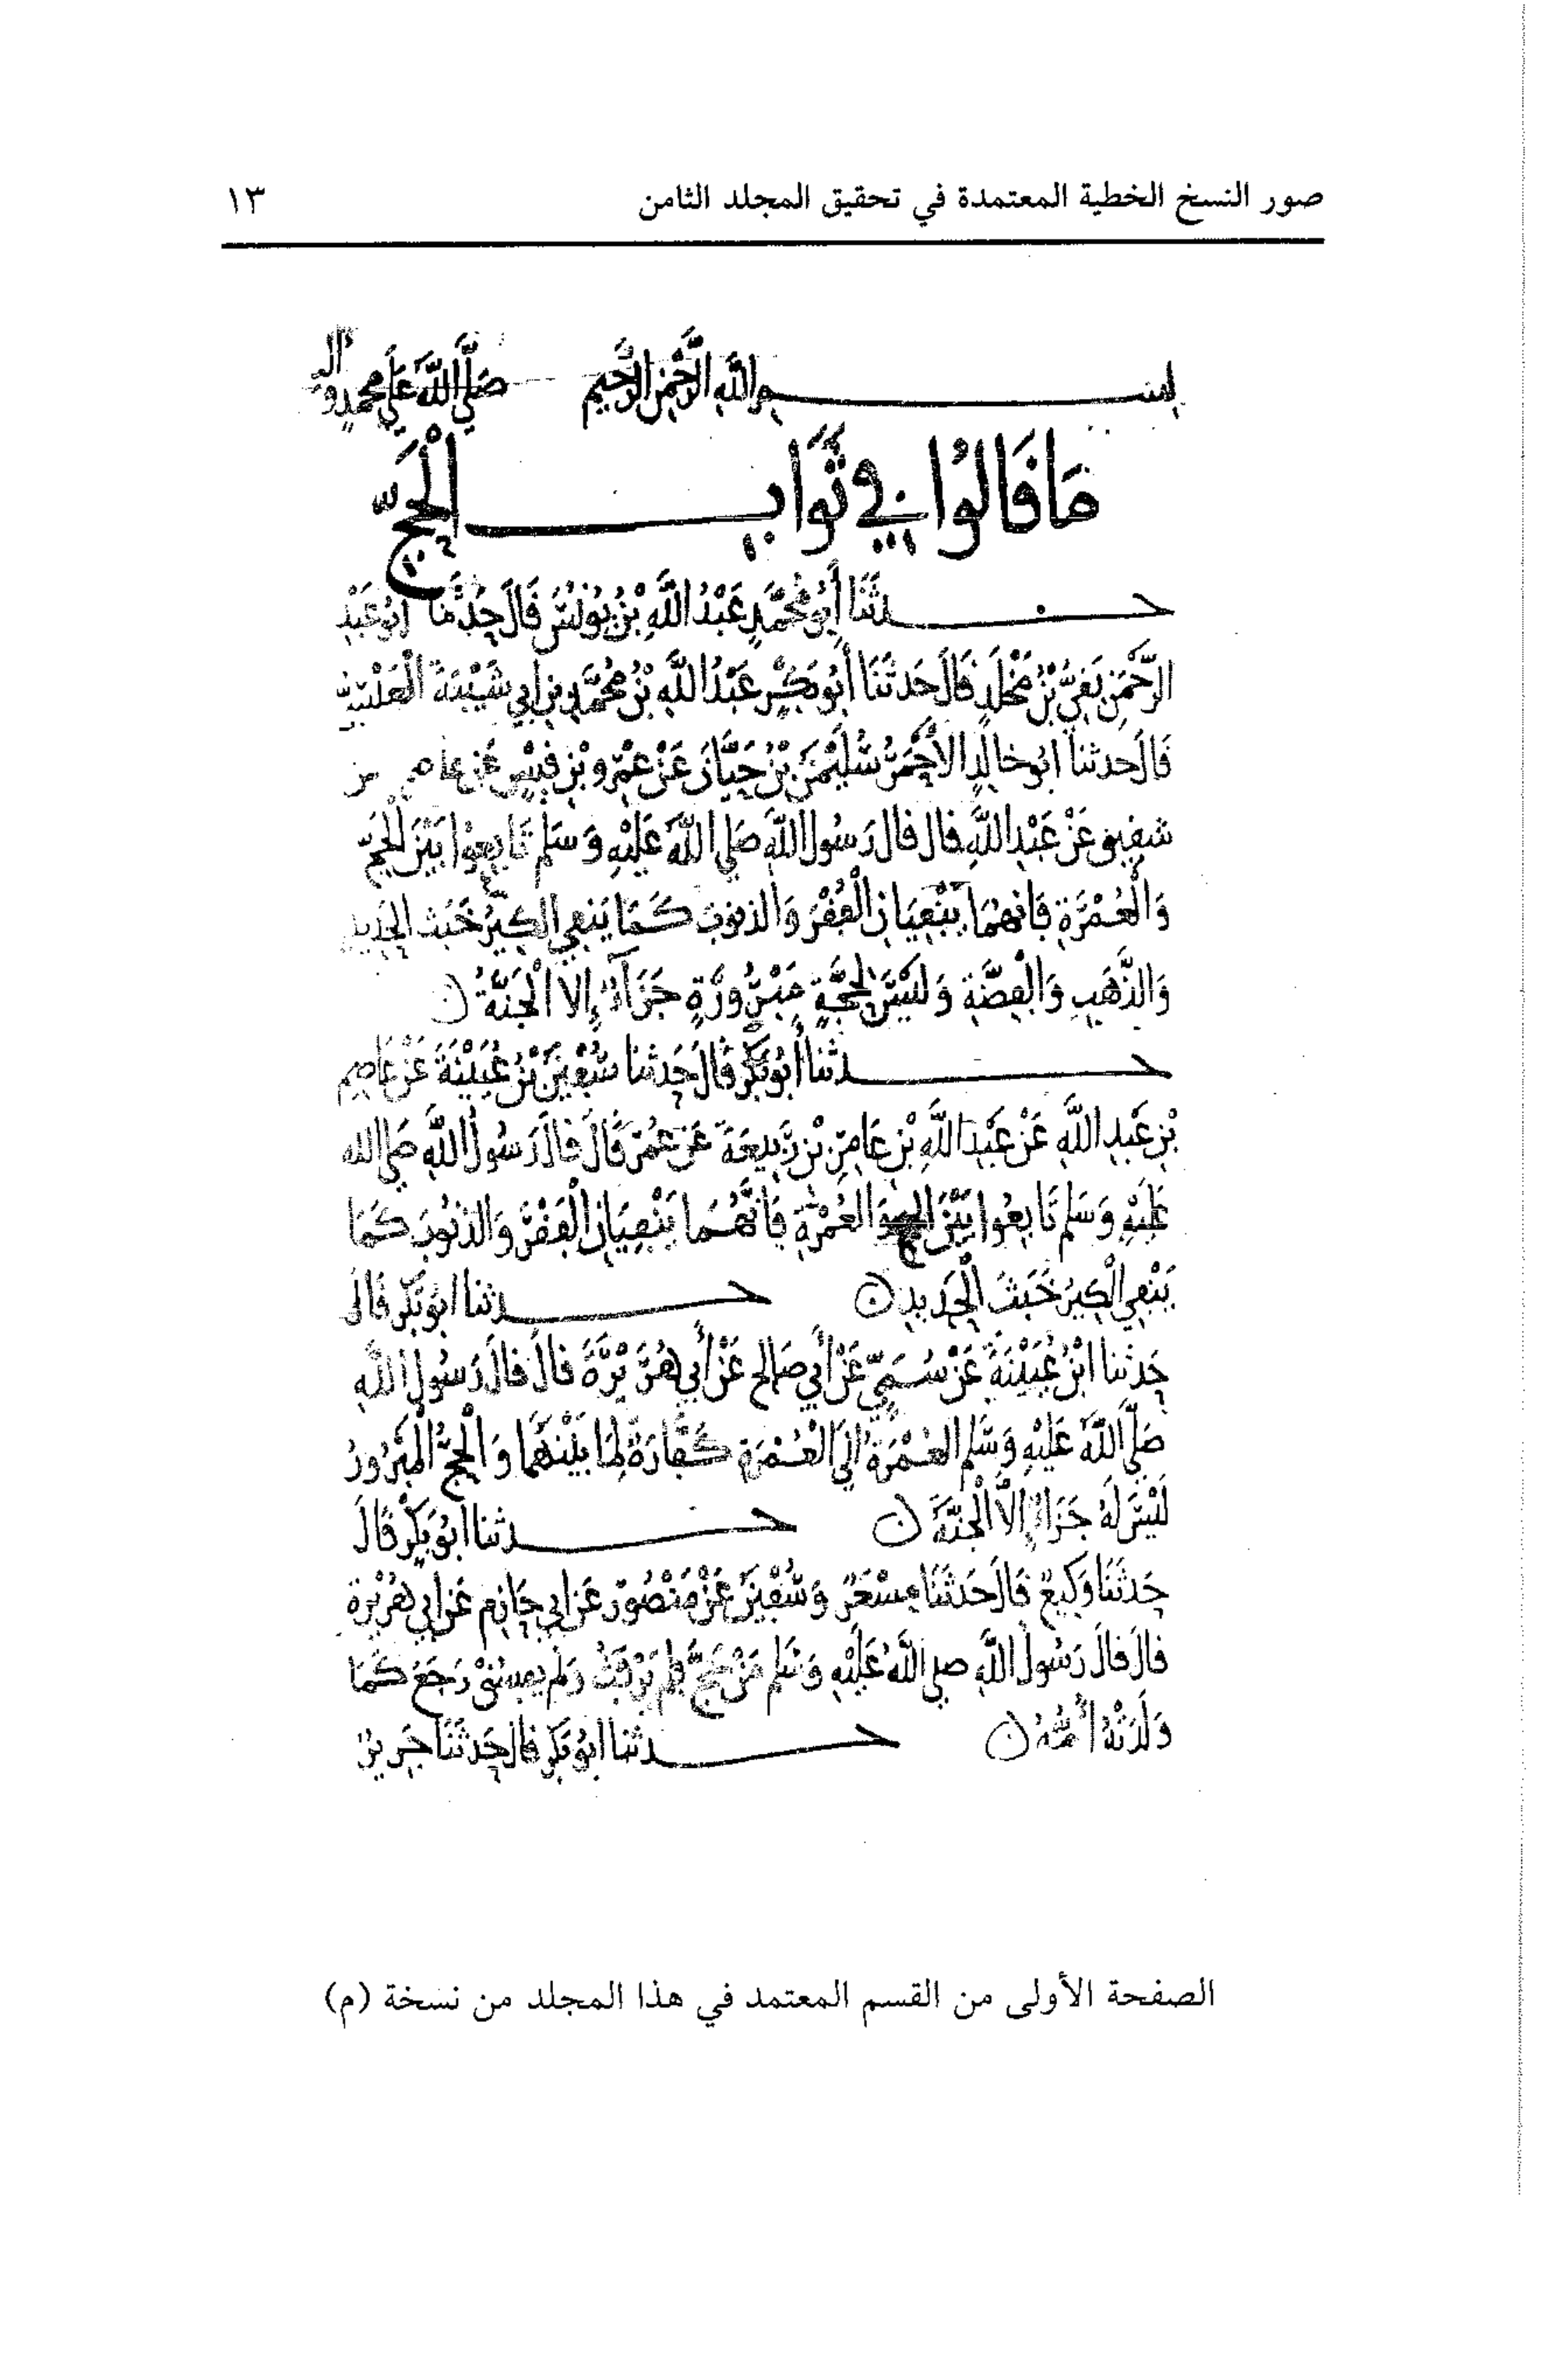 صور النسخ الخطية المعتمدة في تحقيق المجلد الثامن ١٣
بسم الله الرحمن الرحيم صَلَّى اللَّهُ عَلَى محمد وآله
مَا قَالُوا فِي ثَوَابِ الْحَجِّ
حدثَنَا أَبُو مُحَمَّدٍ عَبْدُ اللَّهِ بْنُ يُونُسَ قَالَ حَدَّثَنَا أَبُو عَبْدِ
الرَّحْمَنِ بَقِيُّ بْنُ مَخْلَدٍ قَالَ حَدثَنَا أَبُو بَكْرٍ عَبْدُ اللَّهِ بْنُ مُحَمَّدِ بْنِ أَبِي شَيْبَةَ الْعَبْسِيُّ
قَالَ حَدثنا ابو خالدٍ الأَحْمَرُ سُلَيْمَنُ بْنُ حَيَّانَ عَنْ عَمْرِو بْنِ قَيْسٍ عَن عاصم عن
شقيق عَنْ عَبْدِ اللَّهِ قال قال رَسُولُ اللَّهِ صَلى اللَّهُ عَلَيْهِ وَسَلم تَابِعوا بَيْنَ الْحَجِّ
وَالْعُمْرَةِ فَانهُمَا يَنْفِيَانِ الْفَقْرَ وَالذنوبَ كَمَا يَنفِي الكِيرُ خَبَثَ الحَدِيدِ
وَالذَّهَبِ وَالْفِضَّةِ وَلَيْسَ لِحَجَّةٍ مَبْرُورَةٍ جَزَآءٌ إِلا الْجَنَّةُ ن
حدثنا أَبُو بَكْرٍ قَالَ حَدثنا سُفْيَنُ بْنُ عُيَيْنَةَ عَنْ عَاصِمِ
بْنِ عَبْدِ اللَّهِ عَنْ عَبْدِ اللَّهِ بْنِ عَامِرِ بْنِ رَبِيعَةَ عَنْ عُمَرَ قَالَ قَالَ رَسُولُ اللَّهِ صَلى الله
عَلَيْهِ وَسَلم تَابِعُوا بَيْنَ الحج وَالْعُمْرَةِ فَانَّهُمَا يَنْفِيَانِ الْفَقْرَ وَالذنُوبَ كَمَا
يَنْفِي الْكِيرُ خَبَثَ الْحَدِيدِ ن حدثنا ابُو بَكْرٍ قَالَ
حَدثنا ابْنُ عُيَيْنَةَ عَنْ سُمَيٍّ عَنْ أَبِي صَالِح عَنْ أَبِي هُرَيْرَةَ قَالَ قَالَ رَسُولُ اللَّهِ
صَلَّى اللَّهُ عَلَيْهِ وَسَلم العُمْرَةُ إِلَى الْعُمْرَةِ كَفَّارَةٌ لِمَا بَيْنَهُمَا وَالْحَجُّ الْمَبْرُورُ
لَيْسَ لَهُ جَزَاءٌ إِلاَّ الْجَنَّةُ ن حدثنا ابُو بَكْرٍ قَالَ
حَدثَنَا وَكِيعٌ قَالَ حَدثَنَا مِسْعَرٌ وَسُفْيَنُ عَنْ مَنْصُورٍ عَن ابِي حَازِم عَن ابِي هُرَيْرَة
قَالَ قَالَ رَسُولُ اللَّهِ صلى اللَّهُ عَلَيْهِ وَسَلم مَنْ حَجَّ فلم يَرْفُثْ وَلم يفسُقْ رَجَعَ كَمَا
وَلَدَتْهُ أُمُّهُ ن حدثنا ابُو بَكْرٍ قال حَدثَنَا جَرِيرٌ
الصفحة الأولى من القسم المعتمد في هذا المجلد من نسخة (م)